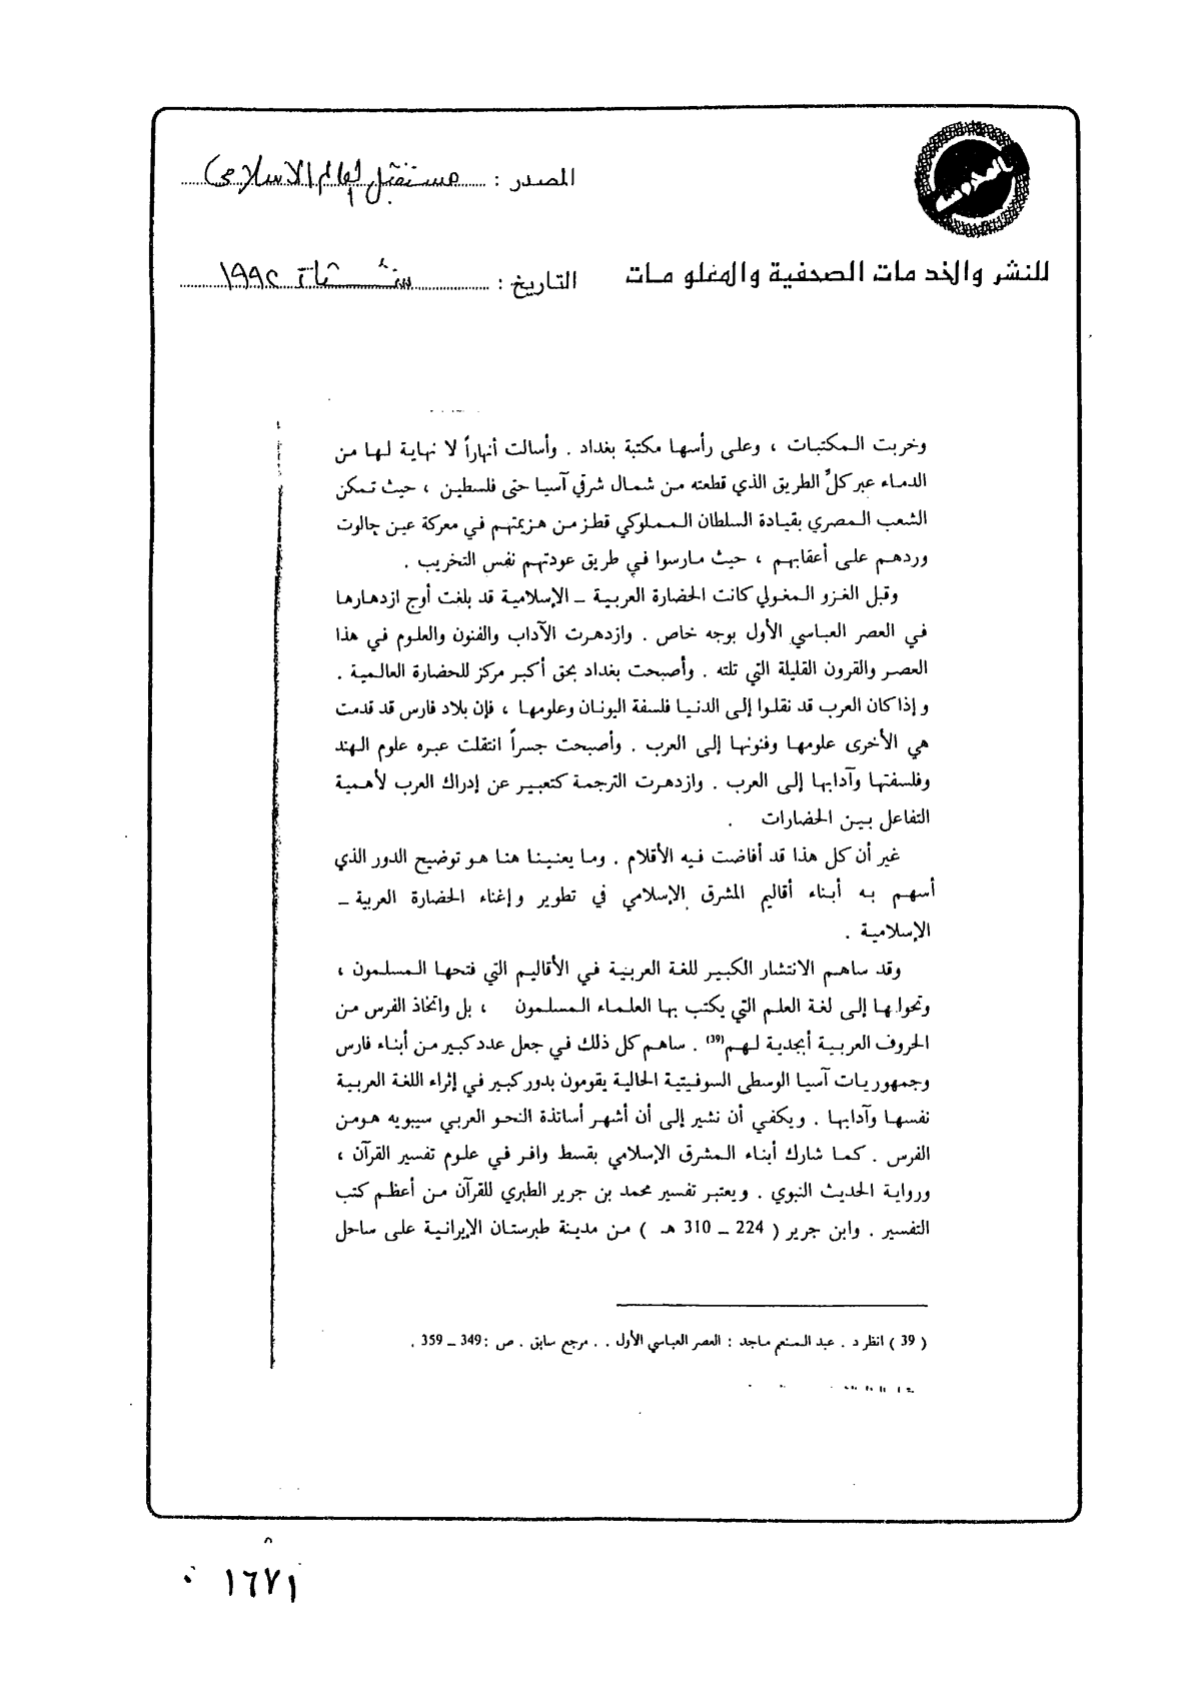 المصدر : مستقبل العالم الاسلامى
للنشر والخدمات الصحفية والمعلومات
التاريخ : شتاء ١٩٩٢
وخربت المكتبات ، وعلى رأسها مكتبة بغداد . وأسالت أنهاراً لا نهاية لها من
الدماء عبر كلِّ الطريق الذي قطعته من شمال شرقي آسيا حتى فلسطين ، حيث تمكن
الشعب المصري بقيادة السلطان المملوكي قطز من هزيمتهم في معركة عين جالوت
وردهم على أعقابهم ، حيث مارسوا في طريق عودتهم نفس التخريب .
وقبل الغزو المغولي كانت الحضارة العربية ــ الإسلامية قد بلغت أوج ازدهارها
في العصر العباسي الأول بوجه خاص . وازدهرت الآداب والفنون والعلوم في هذا
العصر والقرون القليلة التي تلته . وأصبحت بغداد بحق أكبر مركز للحضارة العالمية .
وإذا كان العرب قد نقلوا إلى الدنيا فلسفة اليونان وعلومها ، فإن بلاد فارس قد قدمت
هي الأخرى علومها وفنونها إلى العرب . وأصبحت جسراً انتقلت عبره علوم الهند
وفلسفتها وآدابها إلى العرب . وازدهرت الترجمة كتعبير عن إدراك العرب لأهمية
التفاعل بين الحضارات .
غير أن كل هذا قد أفاضت فيه الأقلام . وما يعنينا هنا هو توضيح الدور الذي
أسهم به أبناء أقاليم المشرق الإسلامي في تطوير وإغناء الحضارة العربية ــ
الإسلامية .
وقد ساهم الانتشار الكبير للغة العربية في الأقاليم التي فتحها المسلمون ،
وتحولها إلى لغة العلم التي يكتب بها العلماء المسلمون ، بل واتخاذ الفرس من
الحروف العربية أبجدية لهم(39) . ساهم كل ذلك في جعل عدد كبير من أبناء فارس
وجمهوريات آسيا الوسطى السوفيتية الحالية يقومون بدور كبير في إثراء اللغة العربية
نفسها وآدابها . ويكفي أن نشير إلى أن أشهر أساتذة النحو العربي سيبويه هو من
الفرس . كما شارك أبناء المشرق الإسلامي بقسط وافر في علوم تفسير القرآن ،
ورواية الحديث النبوي . ويعتبر تفسير محمد بن جرير الطبري للقرآن من أعظم كتب
التفسير . وابن جرير ( 224 ــ 310 هـ ) من مدينة طبرستان الإيرانية على ساحل
( 39 ) انظر د . عبد المنعم ماجد : العصر العباسي الأول . . مرجع سابق . ص : 349 ــ 359 .
١٦٧١